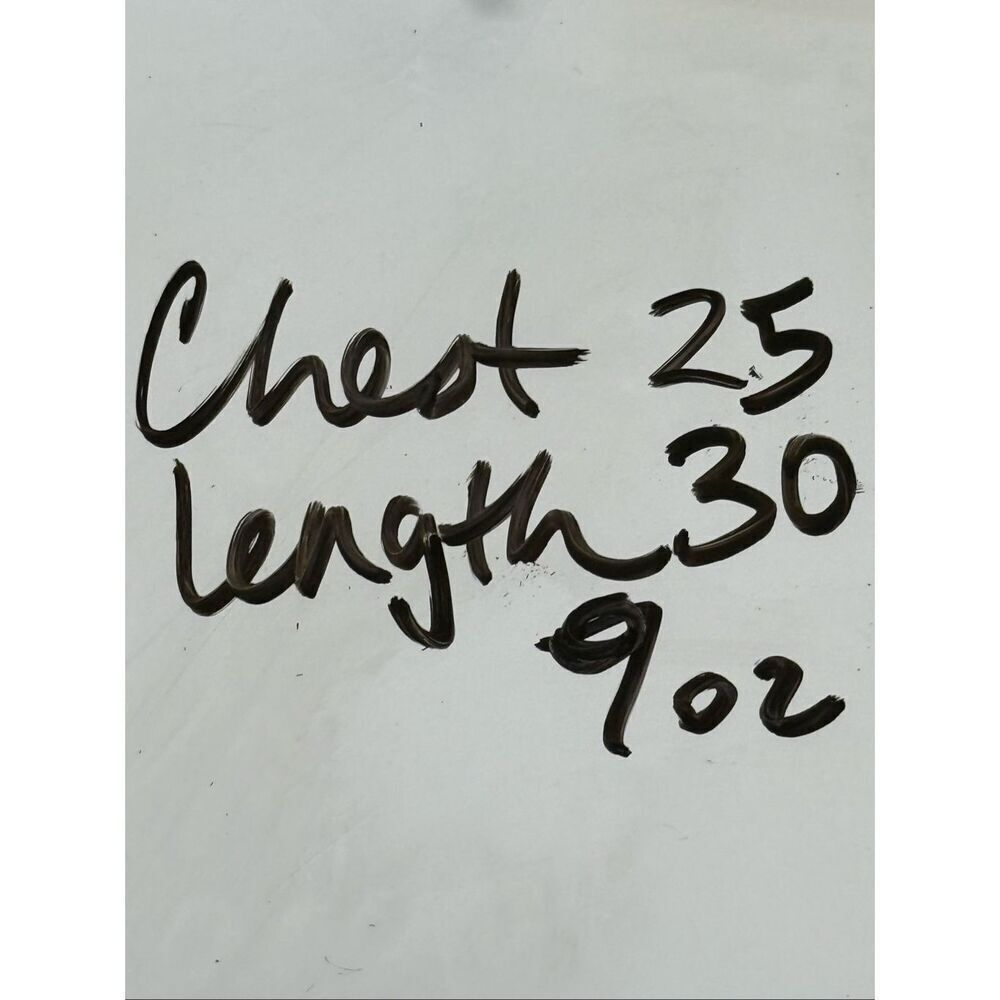 Chest 25
Length 30
9 oz